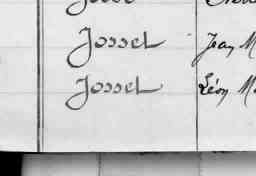 Josset Jean M
Josset Léon M